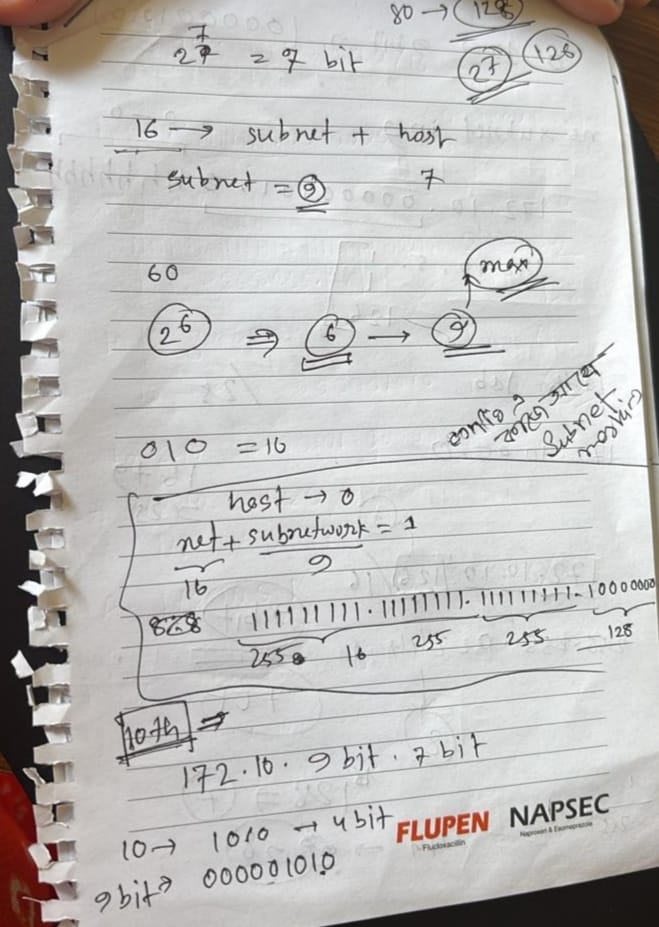 80 → 128
2^7 = 7 bit
2^7 128
16 → subnet + host
subnet = 9 7
60
max
2^6 ⇒ 6 → 9
010 = 16
subnet
masking
host → 0
net + subnetwork = 1
16 9
8.8.8 111111111.11111111.111111111.10000000
255. 16 255 255 128
10th ⇒
172.10. 9 bit. 7 bit
10 → 1010 → 4 bit
9 bit → 000001010
FLUPEN NAPSEC
Flucloxacillin Naproxen & Esomeprazole